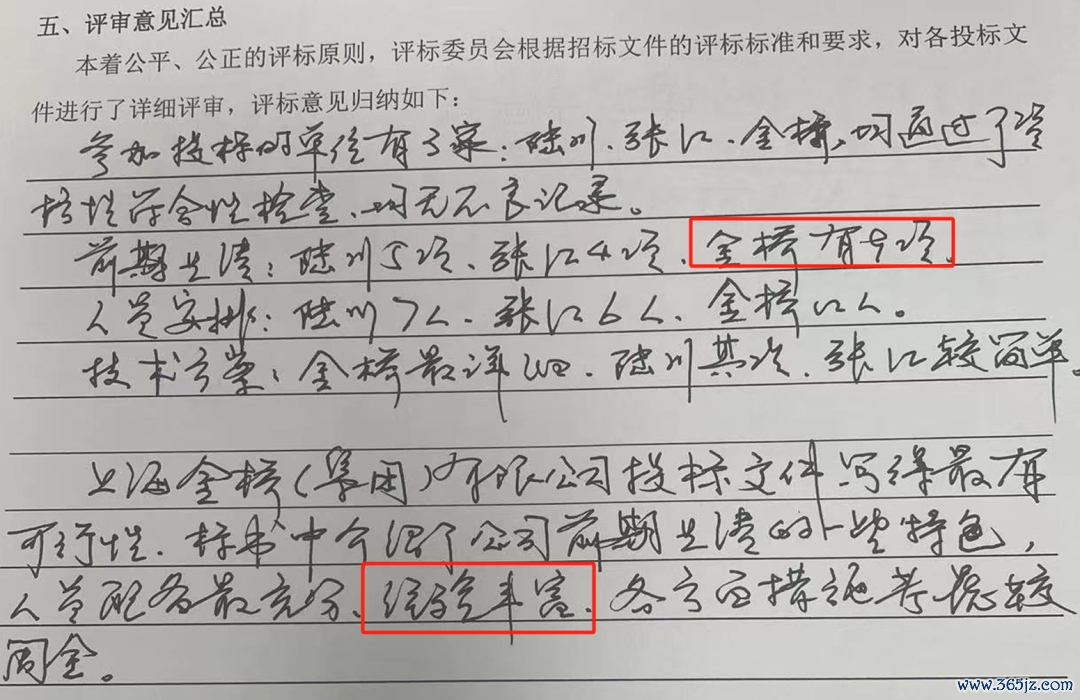 五、评审意见汇总
本着公平、公正的评标原则，评标委员会根据招标文件的评标标准和要求，对各投标文
件进行了详细评审，评标意见归纳如下：
参加投标的单位有3家：陆川、张江、金桥，均通过了资
格性符合性检查，均无不良记录。
前期业绩：陆川5项、张江4项、金桥有9项、
人员安排：陆川7人、张江6人、金桥12人。
技术方案：金桥最详细、陆川其次、张江较简单。
上海金桥（集团）有限公司投标文件写得最有
可行性，标书中介绍了公司前期业绩的一些特色，
人员配备最充分、经验丰富、各方面措施考虑较
周全。
www.365jz.com